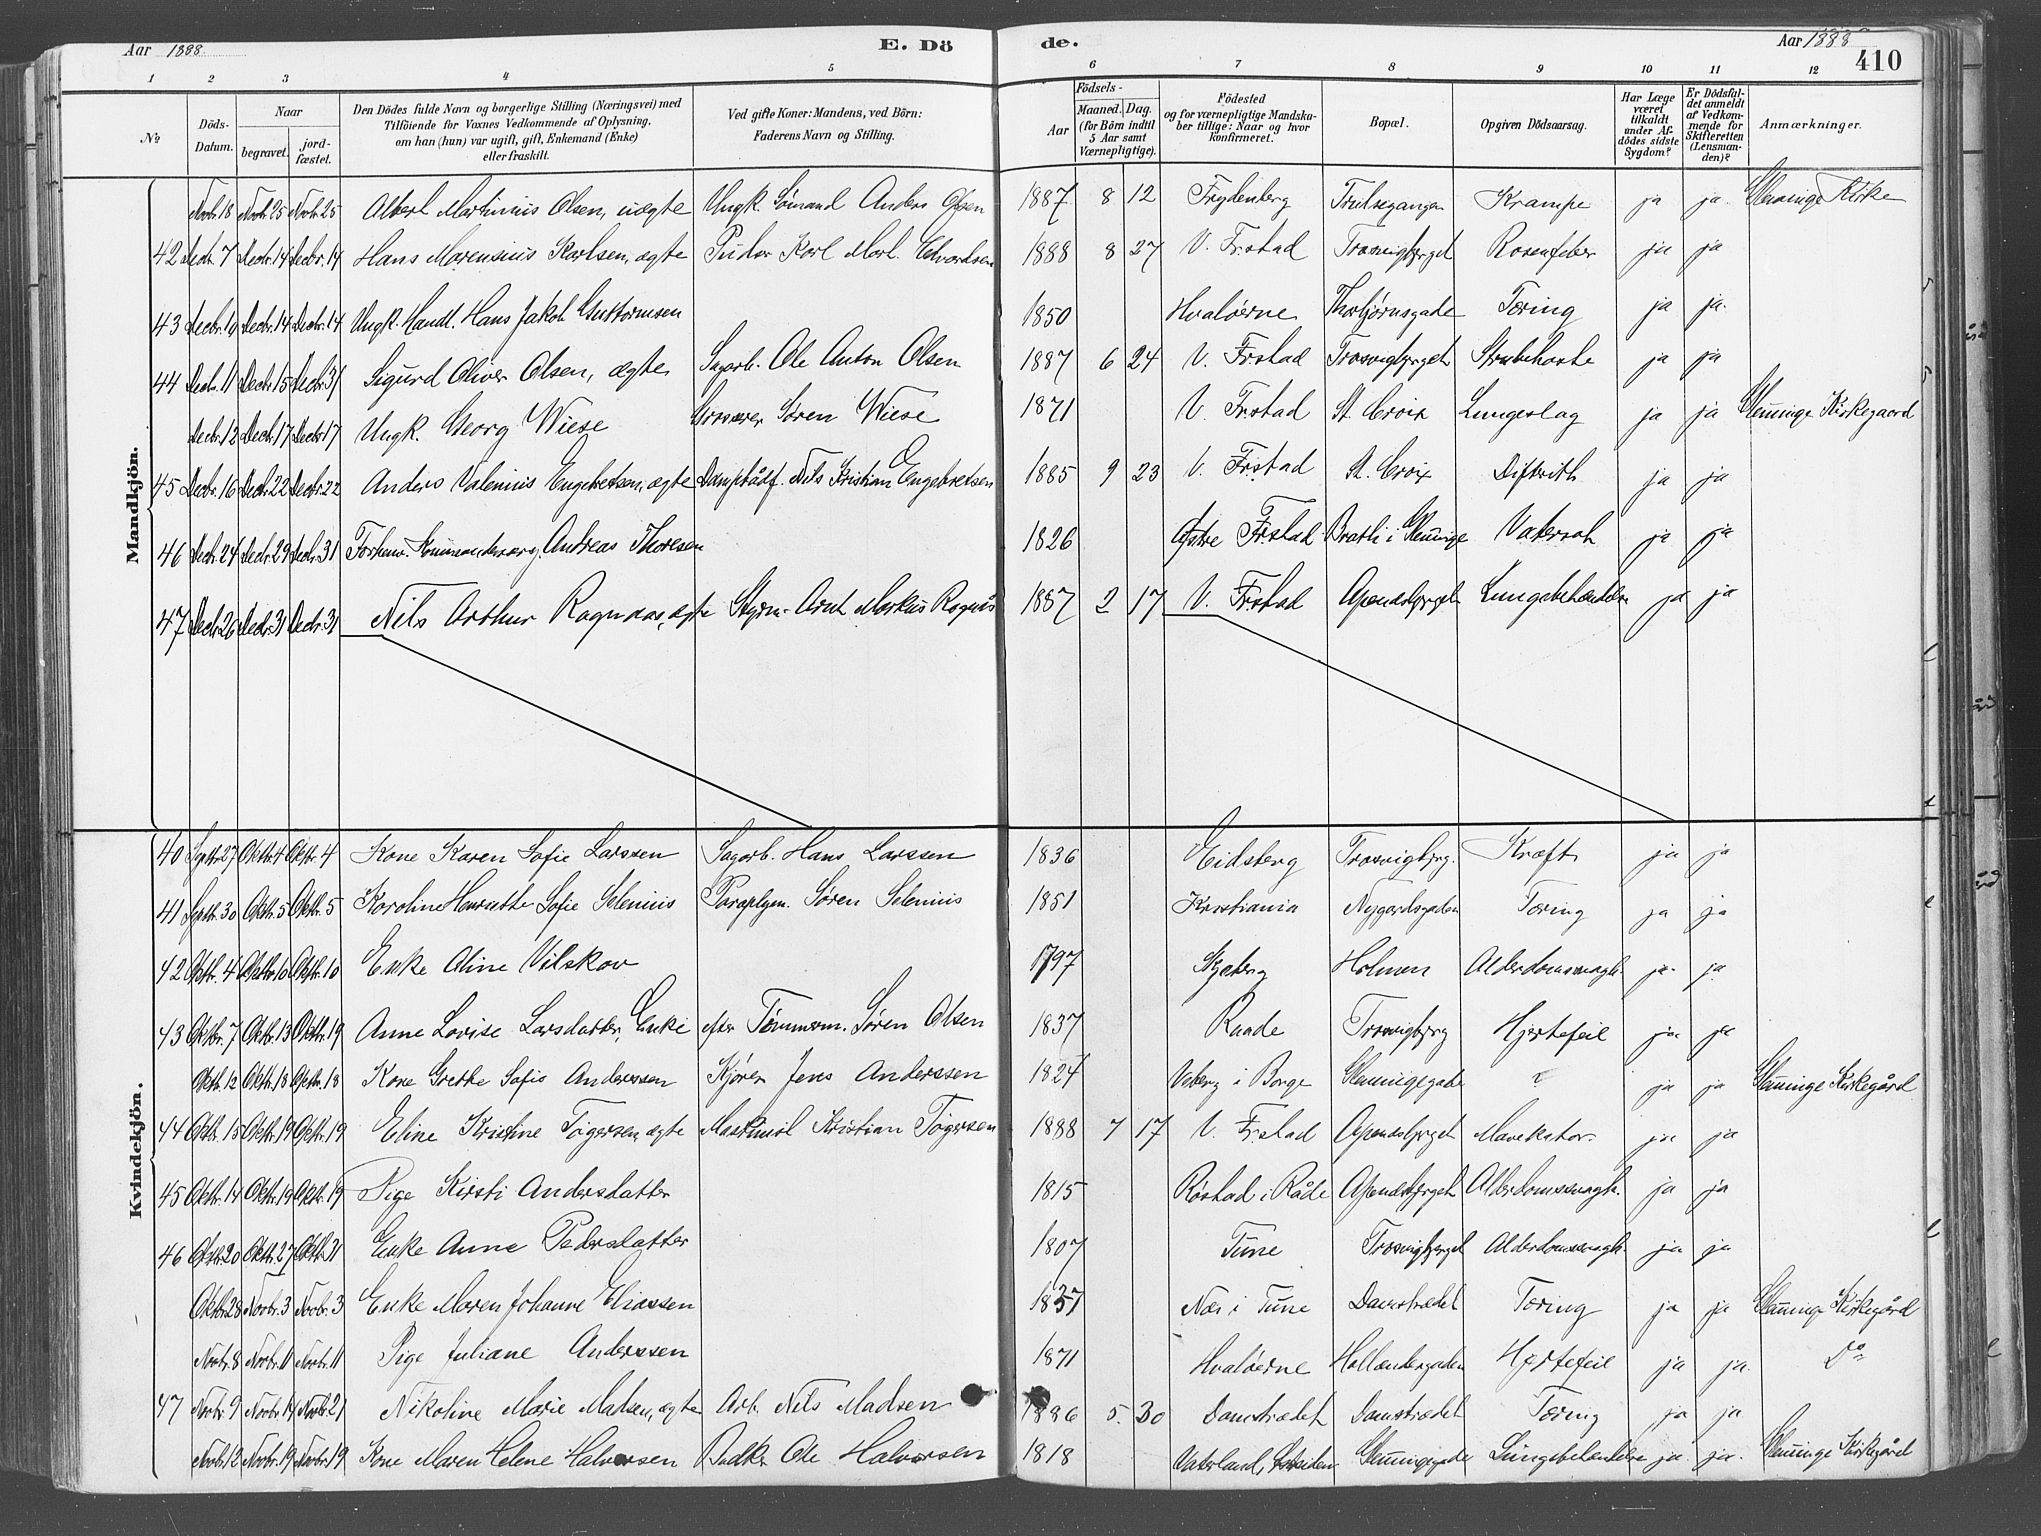 Aar 1888
E. Dö
de.
Aar 1888
410
1 2 3 4 5 6 7 8 9 10 11 12
No
Döds-Datum.
Naar
begravet.
jord-fæstet.
Den Dödes fulde Navn og borgerlige Stilling (Næringsvei) med
Tilföiende for Voxnes Vedkommende af Oplysning,
om han (hun) var ugift, gift, Enkemand (Enke)
eller fraskilt.
Ved gifte Koner: Mandens, ved Börn:
Faderens Navn og Stilling.
Födsels-
Aar
Maaned. Dag.
(for Börn indtil
5 Aar samt
Værnepligtige).
Födested
og for værnepligtige Mandska-
ber tillige: Naar og hvor
konfirmeret.
Bopæl.
Opgiven Dödsaarsag.
Har Læge
været
tilkaldt
under Af-
dödes sidste
Sygdom?
Er Dödsfal-
det anmeldt
af Vedkom-
mende for
Skifteretten
(Lensman-
den)?
Anmærkninger.
Mandkjön.
Novbr. 18 Novbr. 25 Novbr. 25 Albert Martinius Olsen, uægte Ungk. Sömand Anders Olsen 1887 8 12 Frydenberg Krampe ja ja. Glemminge Kirke
42 Decbr. 7 Decbr. 14 Decbr. 14 Hans Marensius Karlsen, ægte Karl Mart. Edvardsen 1888 8 27 V. Fr.stad Trosvigbjerget Rosenfeber ja ja
43 Decbr. 10 Decbr. 14 Decbr. 14 Ungk. Handl. Hans Jakob Guttormsen 1850 Hvalöerne Thorbjørnsgade Tæring ja ja.
44 Decbr. 11 Decbr. 15 Decbr. 31 Sigurd Oliver Olsen, ægte Sagarb. Ole Anton Olsen 1887 6 24 V. Fr.stad Trosvigbjerget Strubehoste ja ja
Decbr. 12 Decbr. 17 Decbr. 17 Ungk. Georg Wiese Grosserer Sören Wiese 1871 V. Fr.stad St. Croix Lungeslag ja ja Glemminge Kirkegaard
45 Decbr. 16 Decbr. 22 Decbr. 22 Anders Valenius Engebretsen, ægte Dampbådf. Nils Kristian Engebretsen 1885 9 23 V. Fr.stad St. Croix Difterith ja ja
46 Decbr. 24 Decbr. 29 Decbr. 31 Andreas Thoresen 1826 Østre Fr.stad Bratli i Glemminge Vatersot ja ja
47 Decbr. 26 Decbr. 31 Decbr. 31 Nils Arthur Ragnaas, ægte Styrm. Arnt Markus Ragnås 1887 2 17 V. Fr.stad Apenæsbjerget Lungebetændelse ja ja
Kvindekjön.
40 Septbr. 27 Oktbr. 4 Oktbr. 4 Kone Karen Sofie Larssen Sagarb. Hans Larssen 1836 Eidsberg Trosvigbjerg. Kræft ja ja
41 Septbr. 30 Oktbr. 5 Oktbr. 5 Karoline Henriette Sofie Selenius Paraplym. Søren Selenius 1851 Kristiania Nygaardsgaden Tæring ja ja
42 Oktbr. 4 Oktbr. 10 Oktbr. 10 Enke Aline Vilskov 1797 Skjeberg Holmen Alderdomssvagh. ja. ja.
43 Oktbr. 7 Oktbr. 13 Oktbr. 19 Anne Lovise Larsdatter, Enke efter Tömmerm. Søren Olsen 1837 Raade Trosvigbjerg Hjertefeil ja. ja
Oktbr. 12 Oktbr. 18 Oktbr. 18 Kone Grethe Sofie Anderssen Kjører Jens Anderssen 1824 i Borge Glemmingegade ? ja ja Glemminge Kirkegård
44 Oktbr. 15 Oktbr. 19 Oktbr. 19 Eline Kristine Tögersen, ægte Maskinist Kristian Tögersen 1888 7 17 V. Fr.stad Apenæsbjerget Mavekatar. ja ja
45 Oktbr. 14 Oktbr. 19 Oktbr. 19 Pige Kirsti Andersdatter 1815 Röstad i Råde Apenæsbjerget Alderdomssvagh. ja ja
46 Oktbr. 20 Oktbr. 27 Oktbr. 31 Enke Anne Pedersdatter 1807 Tune Trosvigbjerget Alderdomssvagh. ja ja
Oktbr. 28 Novbr. 3 Novbr. 3 Enke Maren Johanne Eliassen 1837 Næs i Tune Damstrædet Tæring ja ja Glemminge Kirkegård
Novbr. 8 Novbr. 11 Novbr. 11 Pige Juliane Anderssen 1871 Hvalöerne Hollændergaden Hjertefeil ja ja. Do
47 Novbr. 9 Novbr. 14 Novbr. 21 Nikoline Marie Madsen, ægte Arb. Nils Madsen 1886 5. 30 Damstrædet Damstrædet Tæring ja ja
Novbr. 12 Novbr. 19 Novbr. 19 Kone Maren Helene Halvorsen Ole Halvorsen 1818 Vaterland, Glemmingegade Lungebetændelse ja ja. Glemminge Kirkegård